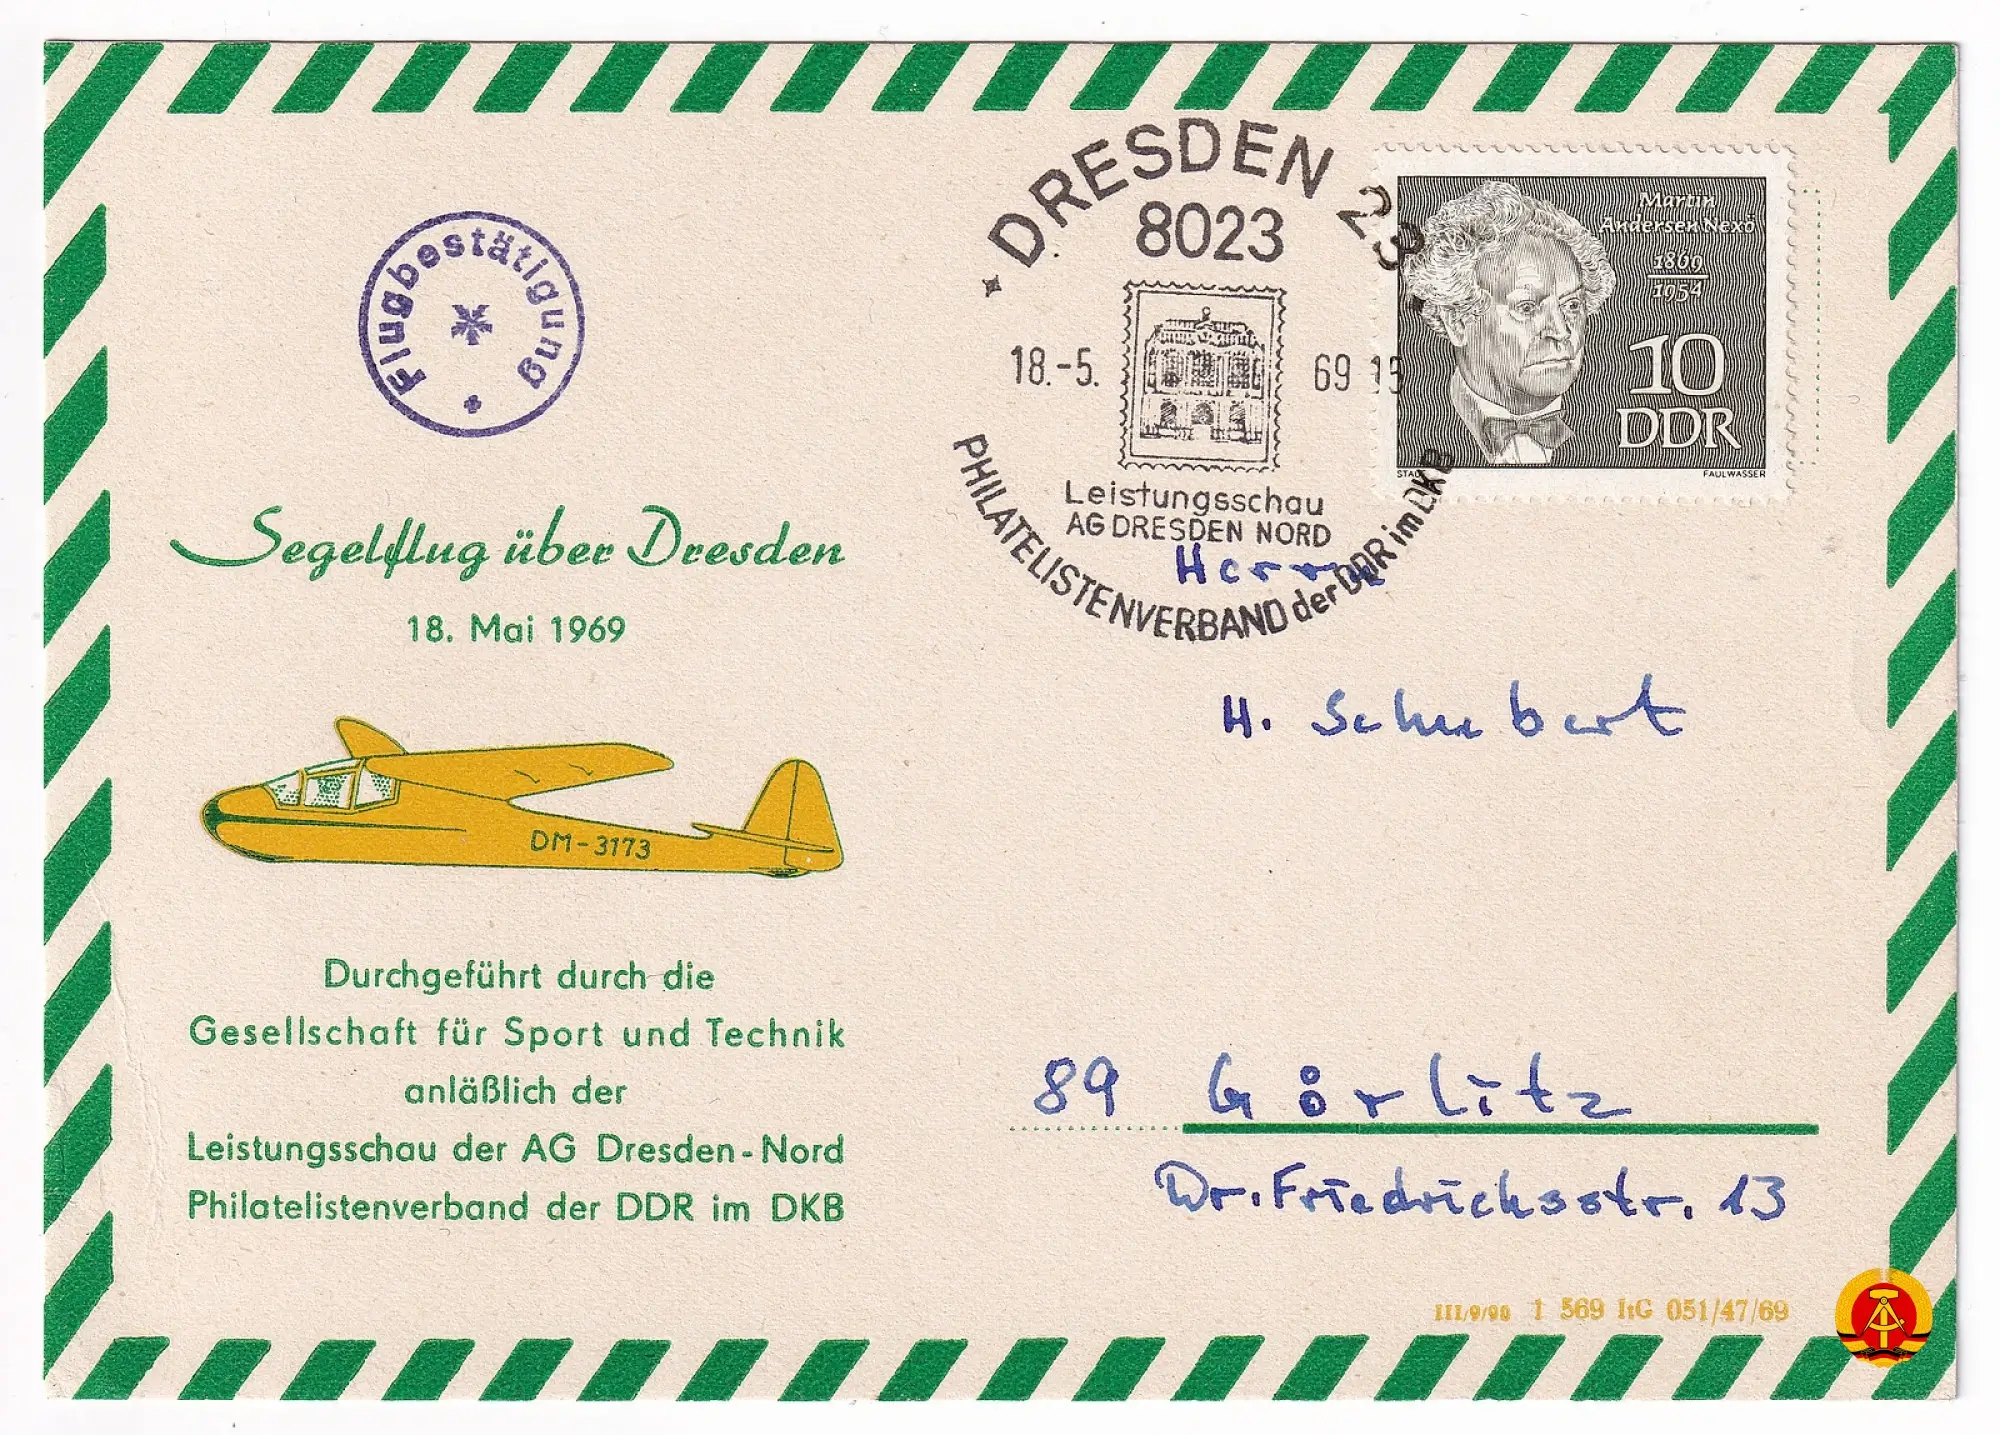 Flugbestätigung
Segelflug über Dresden
18. Mai 1969
DM-3173
Durchgeführt durch die
Gesellschaft für Sport und Technik
anläßlich der
Leistungsschau der AG Dresden-Nord
Philatelistenverband der DDR im DKB
DRESDEN 23
8023
18.-5. 69
Leistungsschau
AG DRESDEN NORD
PHILATELISTENVERBAND der DDR im DKB
Martin
Andersen Nexö
1869
1954
10
DDR
FAULWASSER
Herrn
H. Schubert
89 Görlitz
Dr.Friedrichsstr. 13
III/9/90 1 569 ItG 051/47/69